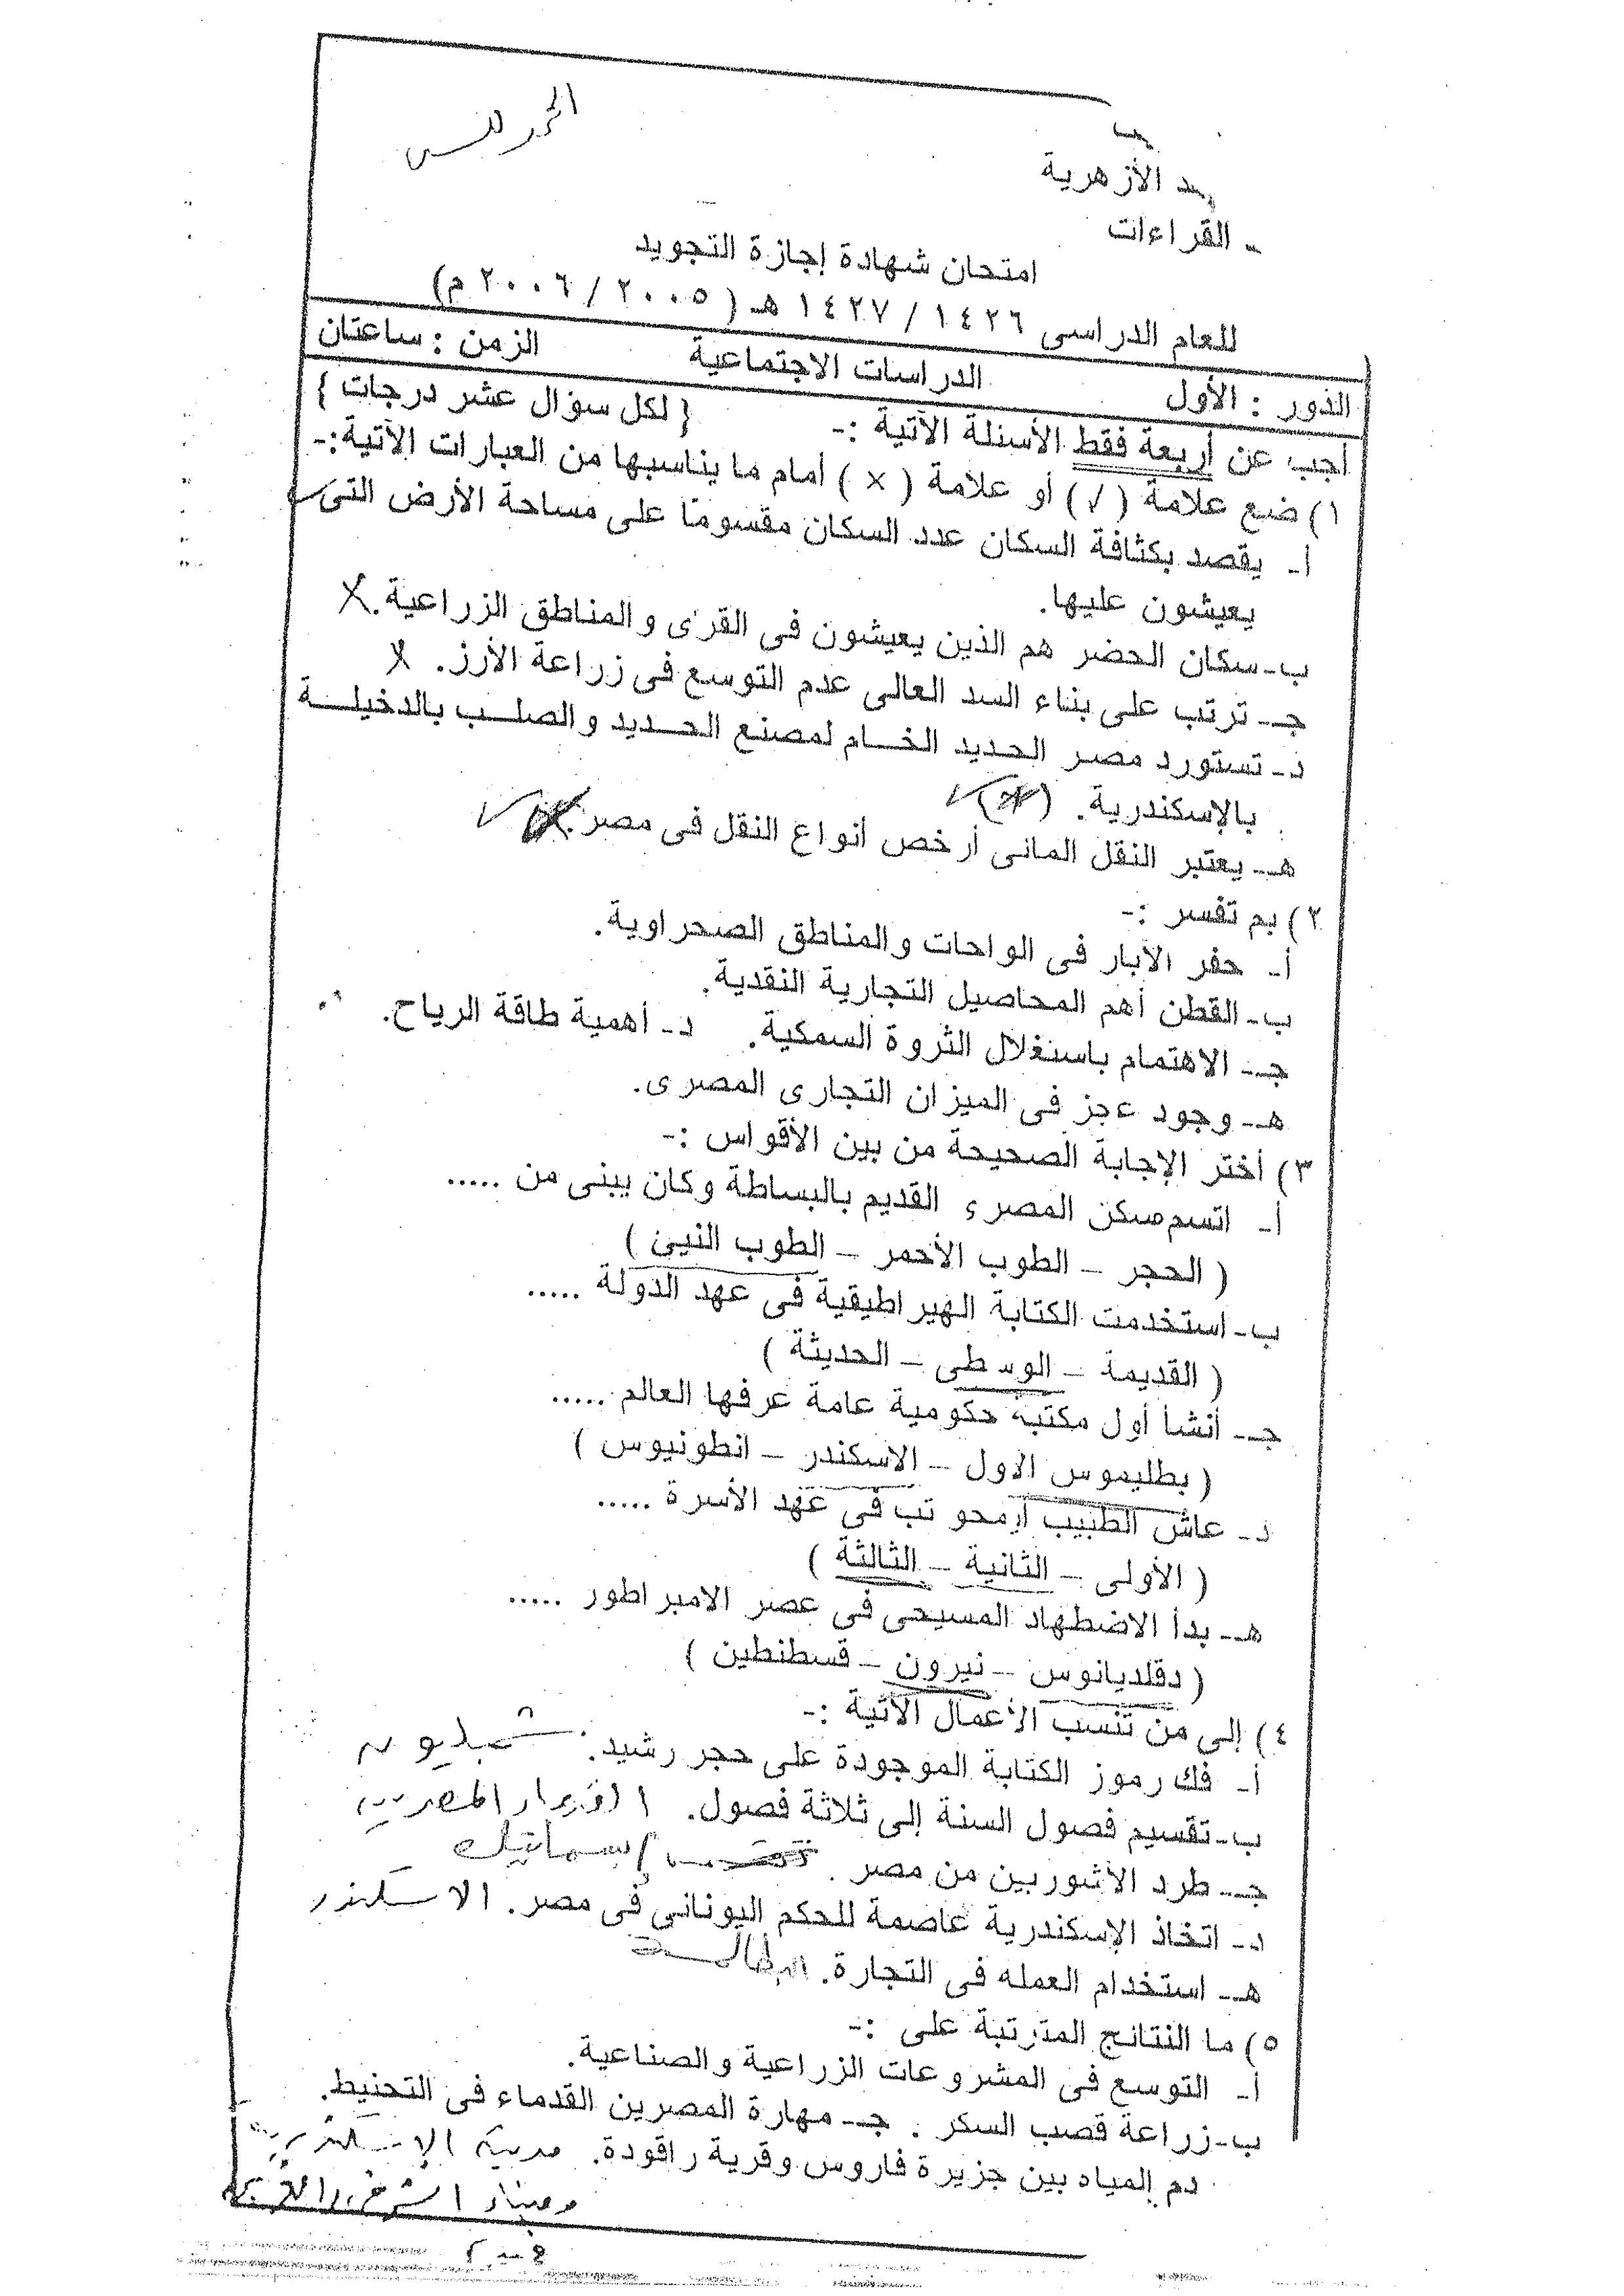 الأزهرية
القراءات
امتحان شهادة إجازة التجويد
للعام الدراسى ١٤٢٦ / ١٤٢٧ هـ ( ٢٠٠٥ / ٢٠٠٦ م)
الدور : الأول الدراسات الاجتماعية الزمن : ساعتان
أجب عن أربعة فقط الأسئلة الآتية :- { لكل سؤال عشر درجات }
١) ضع علامة ( √ ) أو علامة ( × ) أمام ما يناسبها من العبارات الآتية:-
أ- يقصد بكثافة السكان عدد السكان مقسومًا على مساحة الأرض التى ✓
يعيشون عليها.
ب- سكان الحضر هم الذين يعيشون فى القرى والمناطق الزراعية. X
جـ- ترتب على بناء السد العالى عدم التوسع فى زراعة الأرز. X
د- تستورد مصر الحديد الخام لمصنع الحديد والصلب بالدخيلة
بالإسكندرية. ( ) ✓
هـ- يعتبر النقل المائى أرخص أنواع النقل فى مصر. ✓
٢) بم تفسر :-
أ- حفر الآبار فى الواحات والمناطق الصحراوية.
ب- القطن أهم المحاصيل التجارية النقدية.
جـ- الاهتمام باستغلال الثروة السمكية. د- أهمية طاقة الرياح.
هـ- وجود عجز فى الميزان التجارى المصرى.
٣) أختر الإجابة الصحيحة من بين الأقواس :-
أ- اتسم مسكن المصرى القديم بالبساطة وكان يبنى من .....
( الحجر – الطوب الأحمر – الطوب النيئ )
ب- استخدمت الكتابة الهيراطيقية فى عهد الدولة .....
( القديمة – الوسطى – الحديثة )
جـ- أنشأ أول مكتبة حكومية عامة عرفها العالم .....
( بطليموس الأول – الاسكندر – انطونيوس )
د- عاش الطبيب أمحوتب فى عهد الأسرة .....
( الأولى – الثانية – الثالثة )
هـ- بدأ الاضطهاد المسيحى فى عصر الامبراطور .....
( دقلديانوس – نيرون – قسطنطين )
٤) إلى من تنسب الأعمال الآتية :-
أ- فك رموز الكتابة الموجودة على حجر رشيد. شمبليون
ب- تقسيم فصول السنة إلى ثلاثة فصول. المصريين
جـ- طرد الآشوريين من مصر. إبسماتيك
د- اتخاذ الإسكندرية عاصمة للحكم اليونانى فى مصر. الاسكندر
هـ- استخدام العمله فى التجارة. البطالمة
٥) ما النتائج المترتبة على :-
أ- التوسع فى المشروعات الزراعية والصناعية.
ب- زراعة قصب السكر . جـ- مهارة المصرين القدماء فى التحنيط.
دم المياه بين جزيرة فاروس وقرية راقودة. مدينة الإسكندرية
وميناء الشرقى والغربى